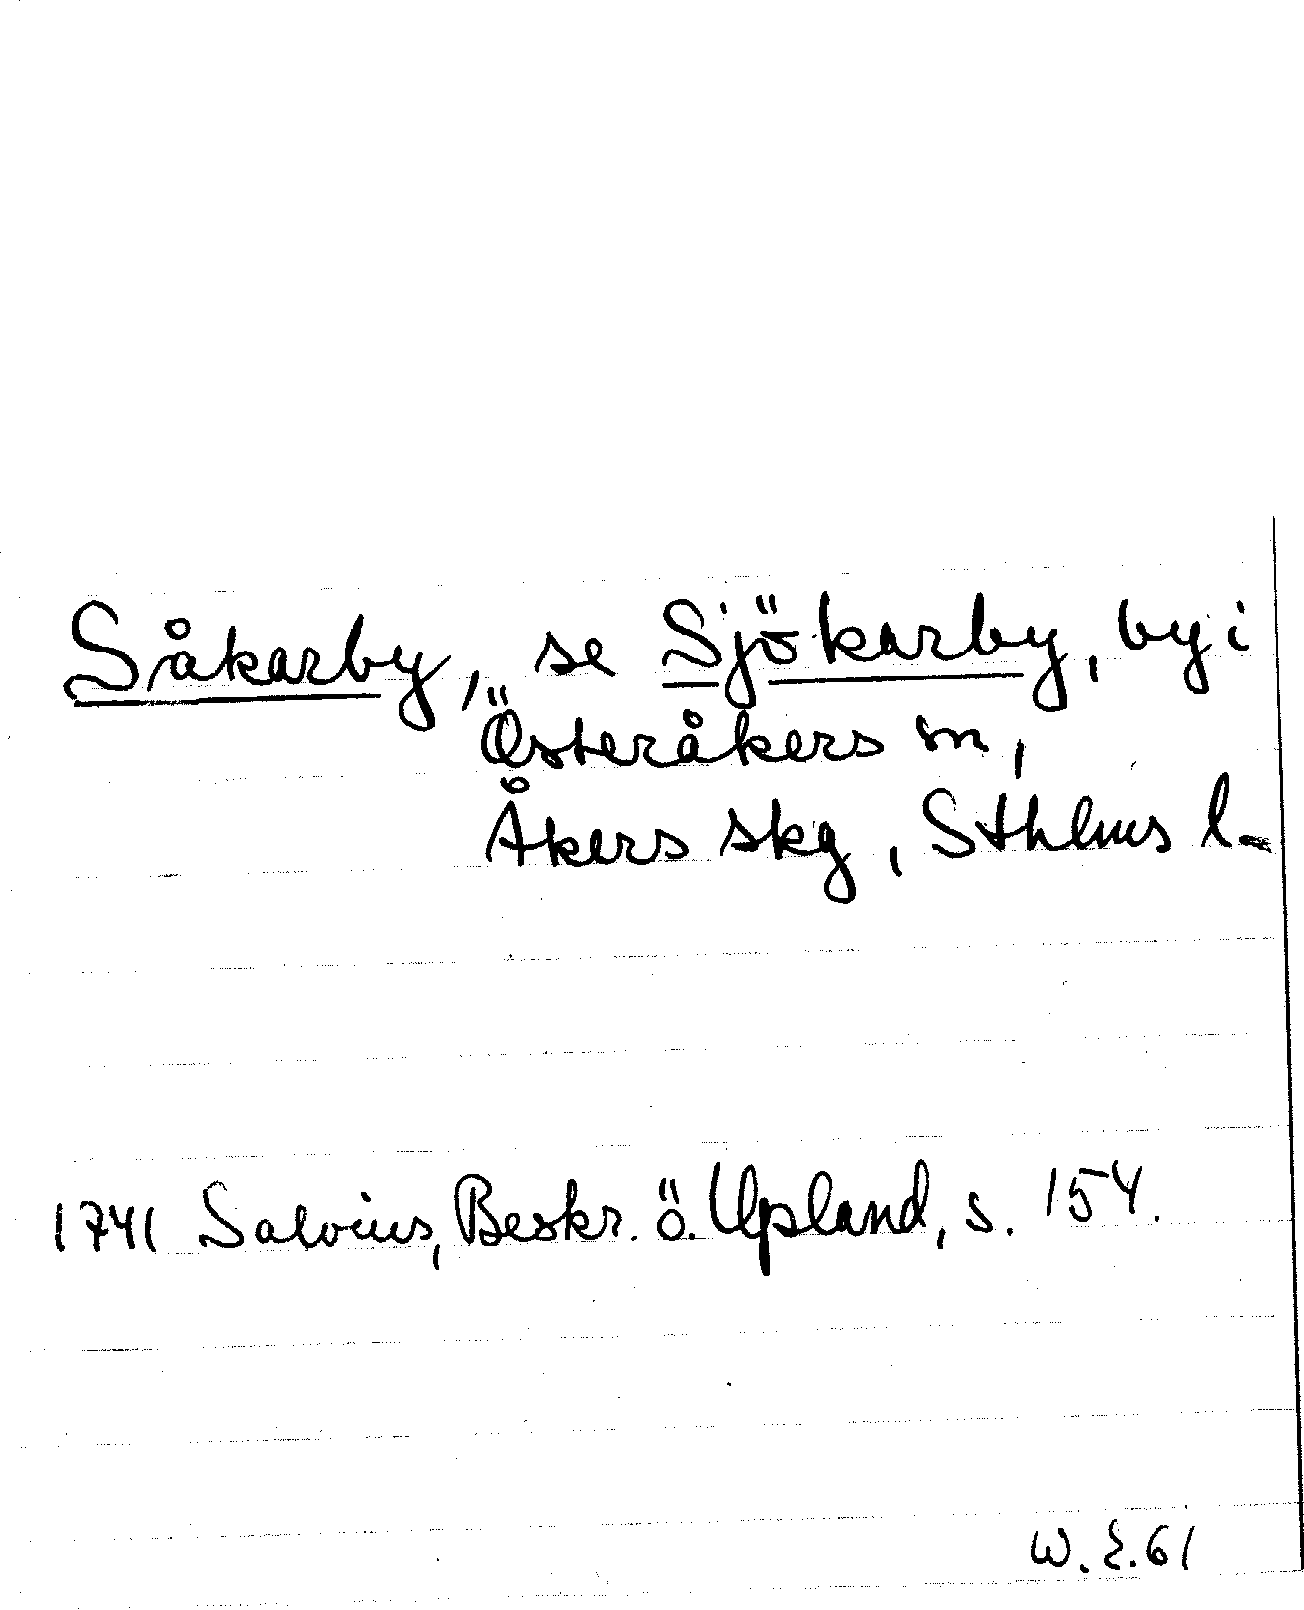 Såkarby, se Sjökarby, by i
Österåkers sn,
Åkers skg, Sthlms l.
1741 Salvius, Beskr. ö. Upland, s. 154.
W.E.61